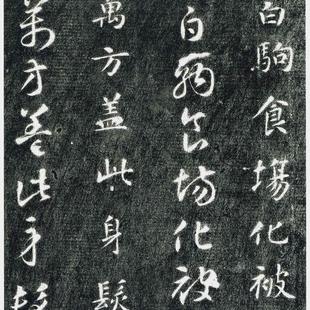 白駒食塲化被
白駒食場化被
萬方盖此身髮
萬方盖此身髮